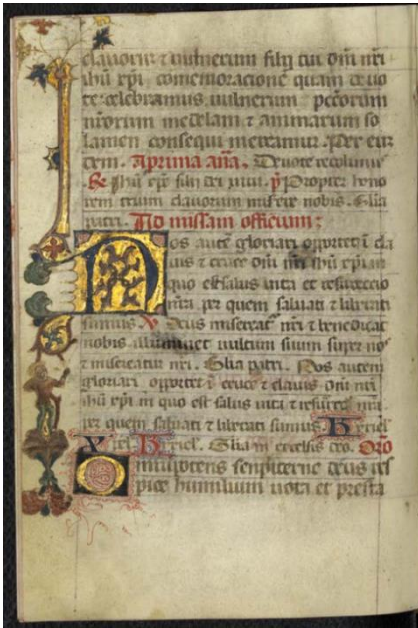 clavorum ⁊ vulnerum filij tui dn̄i nr̄i
ihū xp̄i comemoracionē quam devo
te celebramus vulnerum pccōrum
nr̄orum medelam ⁊ animarum so
lamen consequi mereamur. Per eun
dem. A prima an̄a. Devote recolimus
R̃ Ihū xp̄e fili dei vivi. p̃ Propter hono
rem trium clavorum misere nobis. Glīa
patri. Ad missam officium:
Nos autē gloriari oportet ī cla
vis ⁊ cruce dn̄i nr̄i ihū xp̄i in
quo est salus vita et resurreccio
nr̄a per quem salvati ⁊ liberati
sumus. V̄ Deus misereat᷑ nr̄i ⁊ benedicat
nobis illuminet vultum suum super nos
⁊ misereatur nr̄i. Glīa patri. Nos autem
gloriari oportet ī cruce ⁊ clavis dn̄i nr̄i
ihū xp̄i in quo est salus vita ⁊ resurrec̄ nr̄a
per quem salvati ⁊ liberati sumus. Kyriel
Xpiel Kyriel. Glīa in excelsis deo. Orō
Omnipotens sempiterne deus res
pice humilium vota et presta